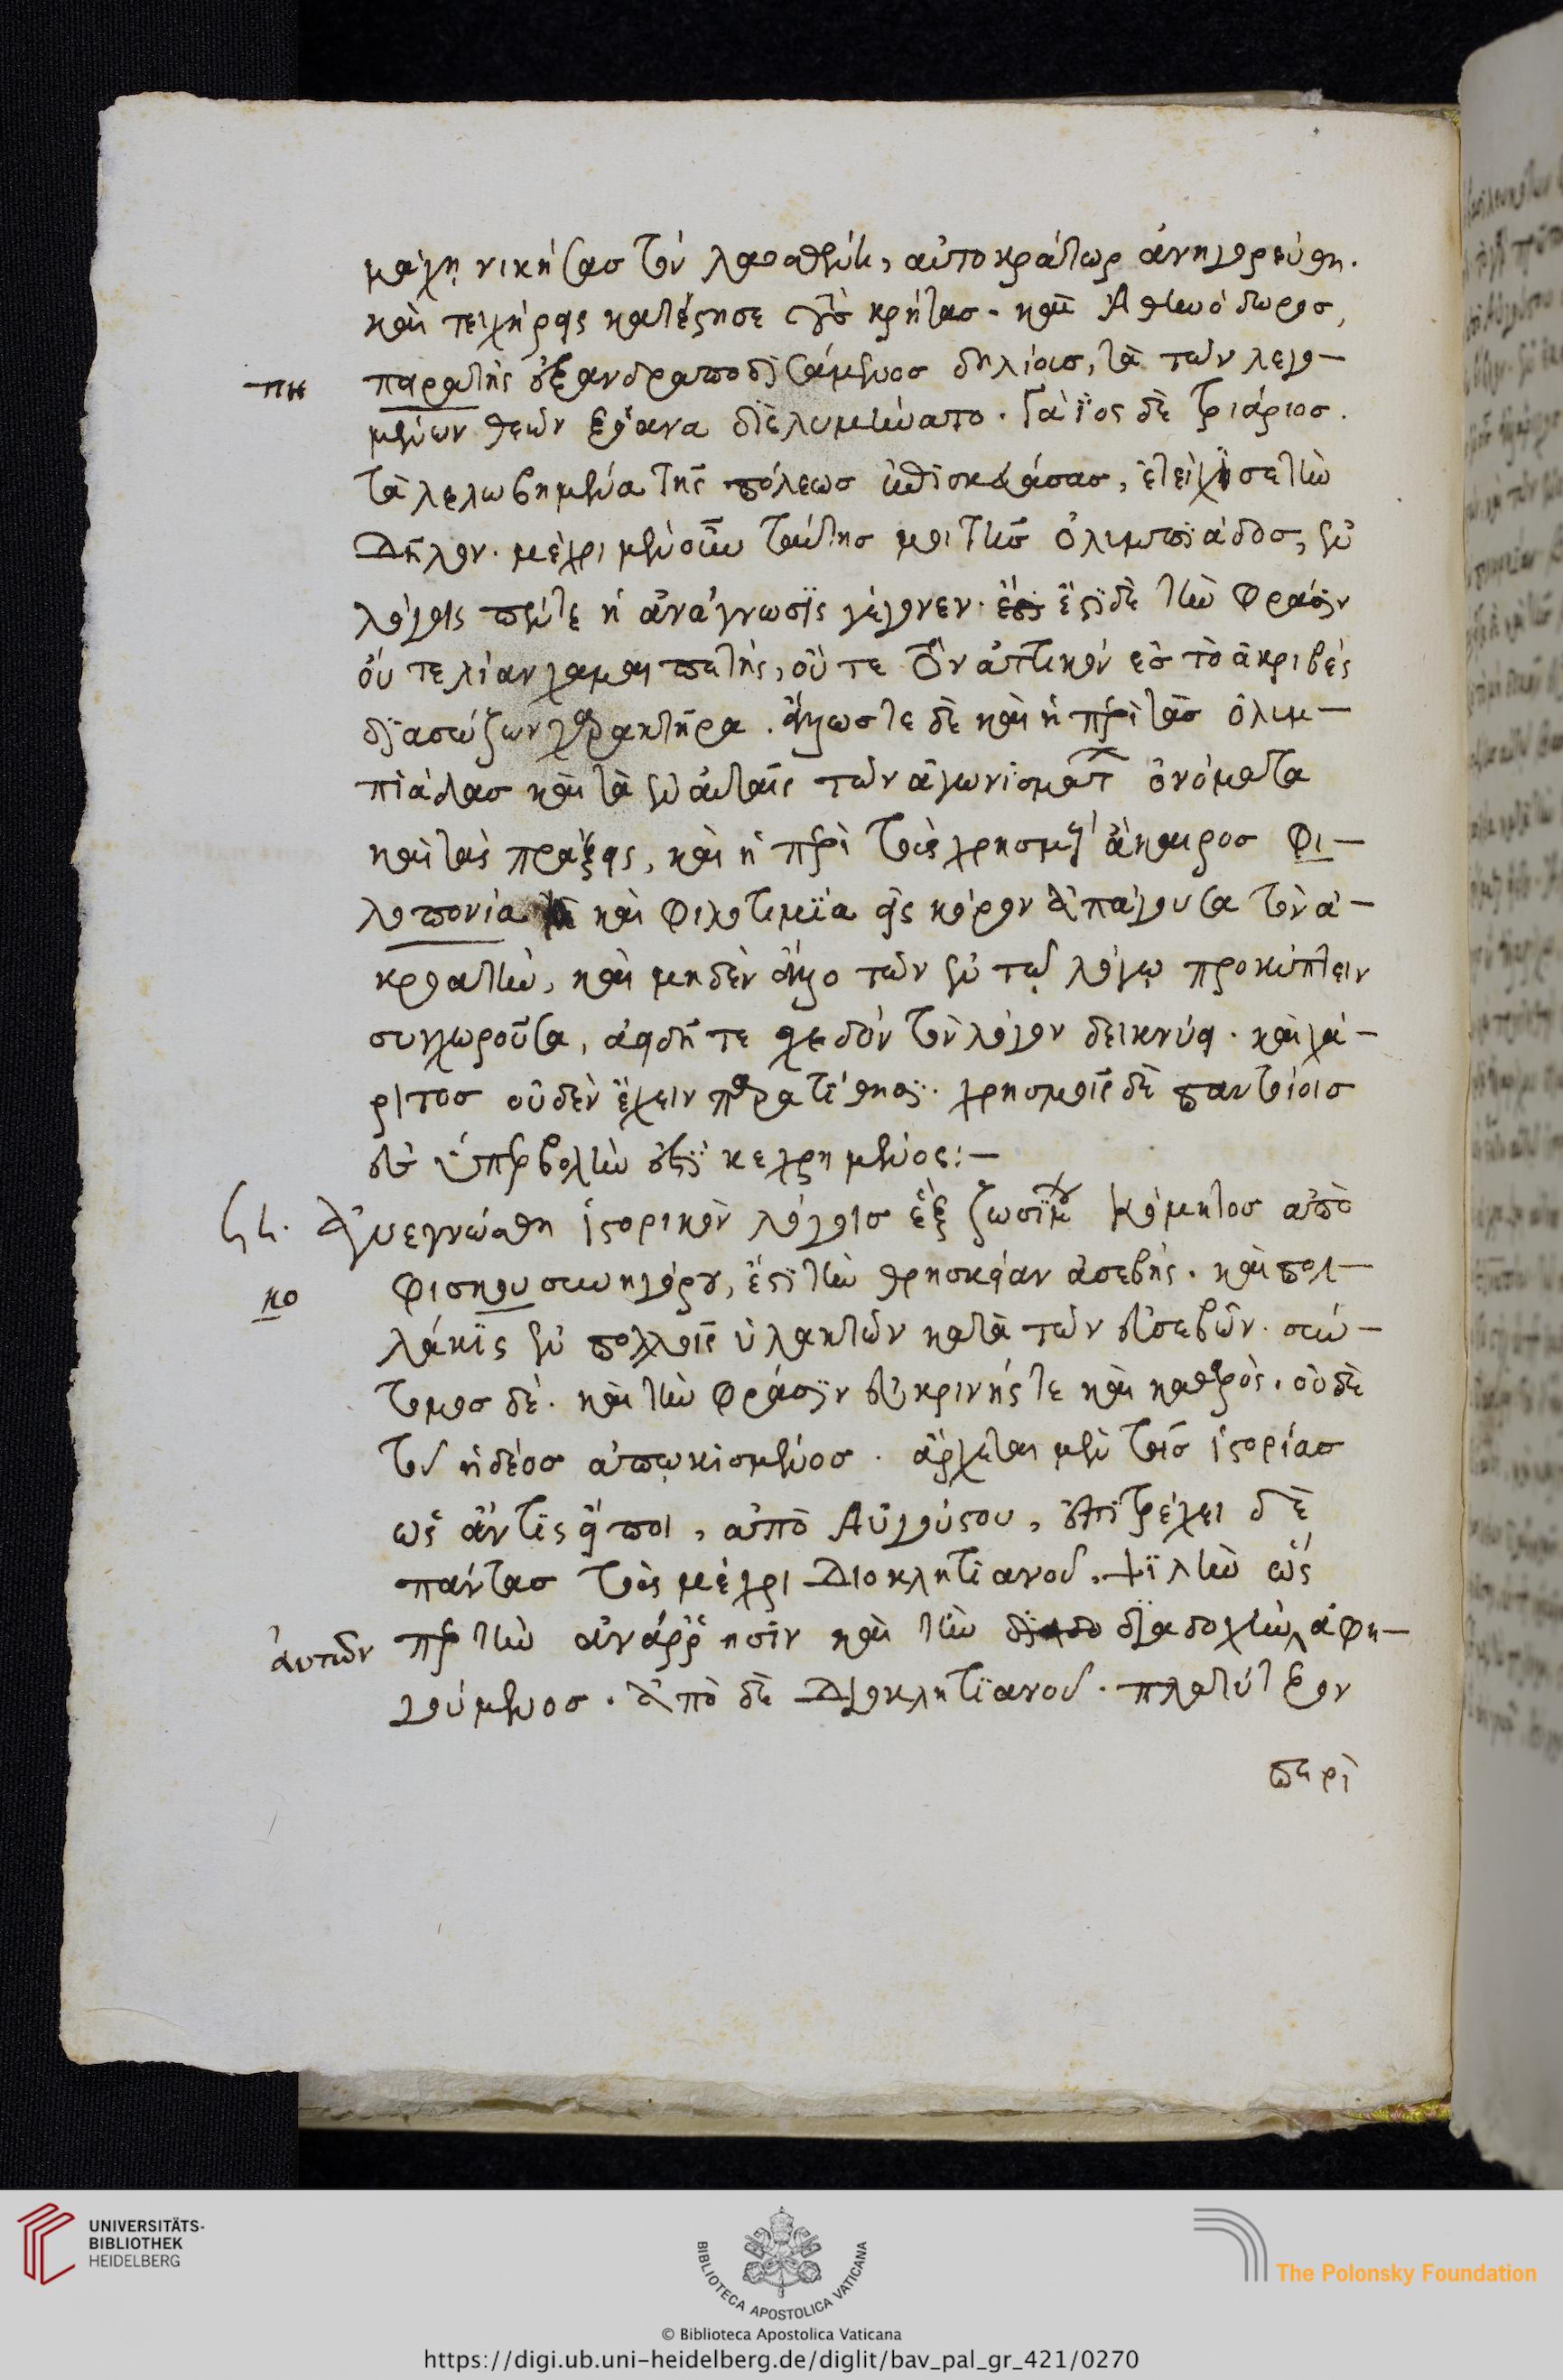 μάχῃ νικήσας τὸν λασαθένη, αὐτοκράτωρ ἀνηγορεύθη.
καὶ τειχήρεις κατέστησε τοὺς κρήτας. καὶ Ἀθηνόδωρος,
πη πειρατὴς ἐξανδραποδισάμενος δηλίους, τὰ τῶν λεγο–
μένων θεῶν ξόανα διελυμήνατο. Γάϊος δὲ τριάριος.
τὰ λελωβημένα τῆς πόλεως ἐπισκευάσας, ἐτείχισε τὴν
Δῆλον. μέχρι μὲν οὖν ταύτης μοι τῆς ὀλυμπιάδος, ἐν
λόγοις πέντε ἡ ἀνάγνωσις γέγονεν. ἔστι δὲ τὴν φράσιν
οὔτε λίαν χαμαιπετὴς, οὔτε τὸν ἀττικὸν ἐς τὸ ἀκριβὲς
διασώζων χαρακτῆρα. ἄλλως τε δὲ καὶ ἡ περὶ τὰς ὀλυμ–
πιάδας καὶ τὰ ἐν αὐταῖς τῶν ἀγωνισμάτ ὀνόματα
καὶ τὰς πράξεις, καὶ ἡ περὶ τοὺς χρησμοὺς ἄκαιρος φι–
λοπονία καὶ φιλοτιμία εἰς κόρον ἀπάγουσα τὸν ἀ–
κροατὴν, καὶ μηδὲν ἄλλο τῶν ἐν τῷ λόγῳ προκύπτειν
συγχωροῦσα, ἀηδῆ τε σχεδὸν τὸν λόγον δείκνυσι. καὶ χά–
ριτος οὐδὲν ἔχειν παρατίθησι. χρησμοῖς δὲ παντοίοις
εἰς ὑπερβολὴν ἐστὶ κεχρημένος:–
Ἀνεγνώσθη ἱστορικὸν λόγοις ἓξ ζωσίμου κόμητος ἀπὸ
κο φισκουσυνηγόρου, ἔστι τὴν θρησκείαν ἀσεβής. καὶ πολ–
λάκις ἐν πολλοῖς ὑλακτῶν κατὰ τῶν εὐσεβῶν. σύν–
τομος δὲ. καὶ τὴν φράσιν εὐκρινής τε καὶ καθαρός. οὐδὲ
τοῦ ἡδέος ἀπῳκισμένος. ἄρχεται μὲν τῆς ἱστορίας
ὡς ἄν τις εἴποι, ἀπὸ Αὐγούστου, ἐπιτρέχει δὲ
πάντας τοὺς μέχρι Διοκλητιανοῦ, ψιλὴν ὡς
αὐτῶν περ τὴν ἀνάρρησιν καὶ τὴν διαδο διαδοχὴν ἀφη–
γούμενος. Ἀπὸ δὲ Διοκλητιανοῦ. πλατύτερον
περὶ
UNIVERSITÄTS-
BIBLIOTHEK
HEIDELBERG
BIBLIOTECA APOSTOLICA VATICANA
The Polonsky Foundation
© Biblioteca Apostolica Vaticana
https://digi.ub.uni-heidelberg.de/diglit/bav_pal_gr_421/0270